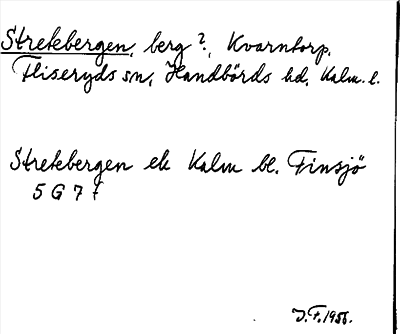 Strekebergen, berg?, Kvarntorp,
Fliseryds sn, Handbörds hd, Kalm. l.
Strekebergen ek Kalm bl. Finsjö
5 G 7 f
J.F. 1956.